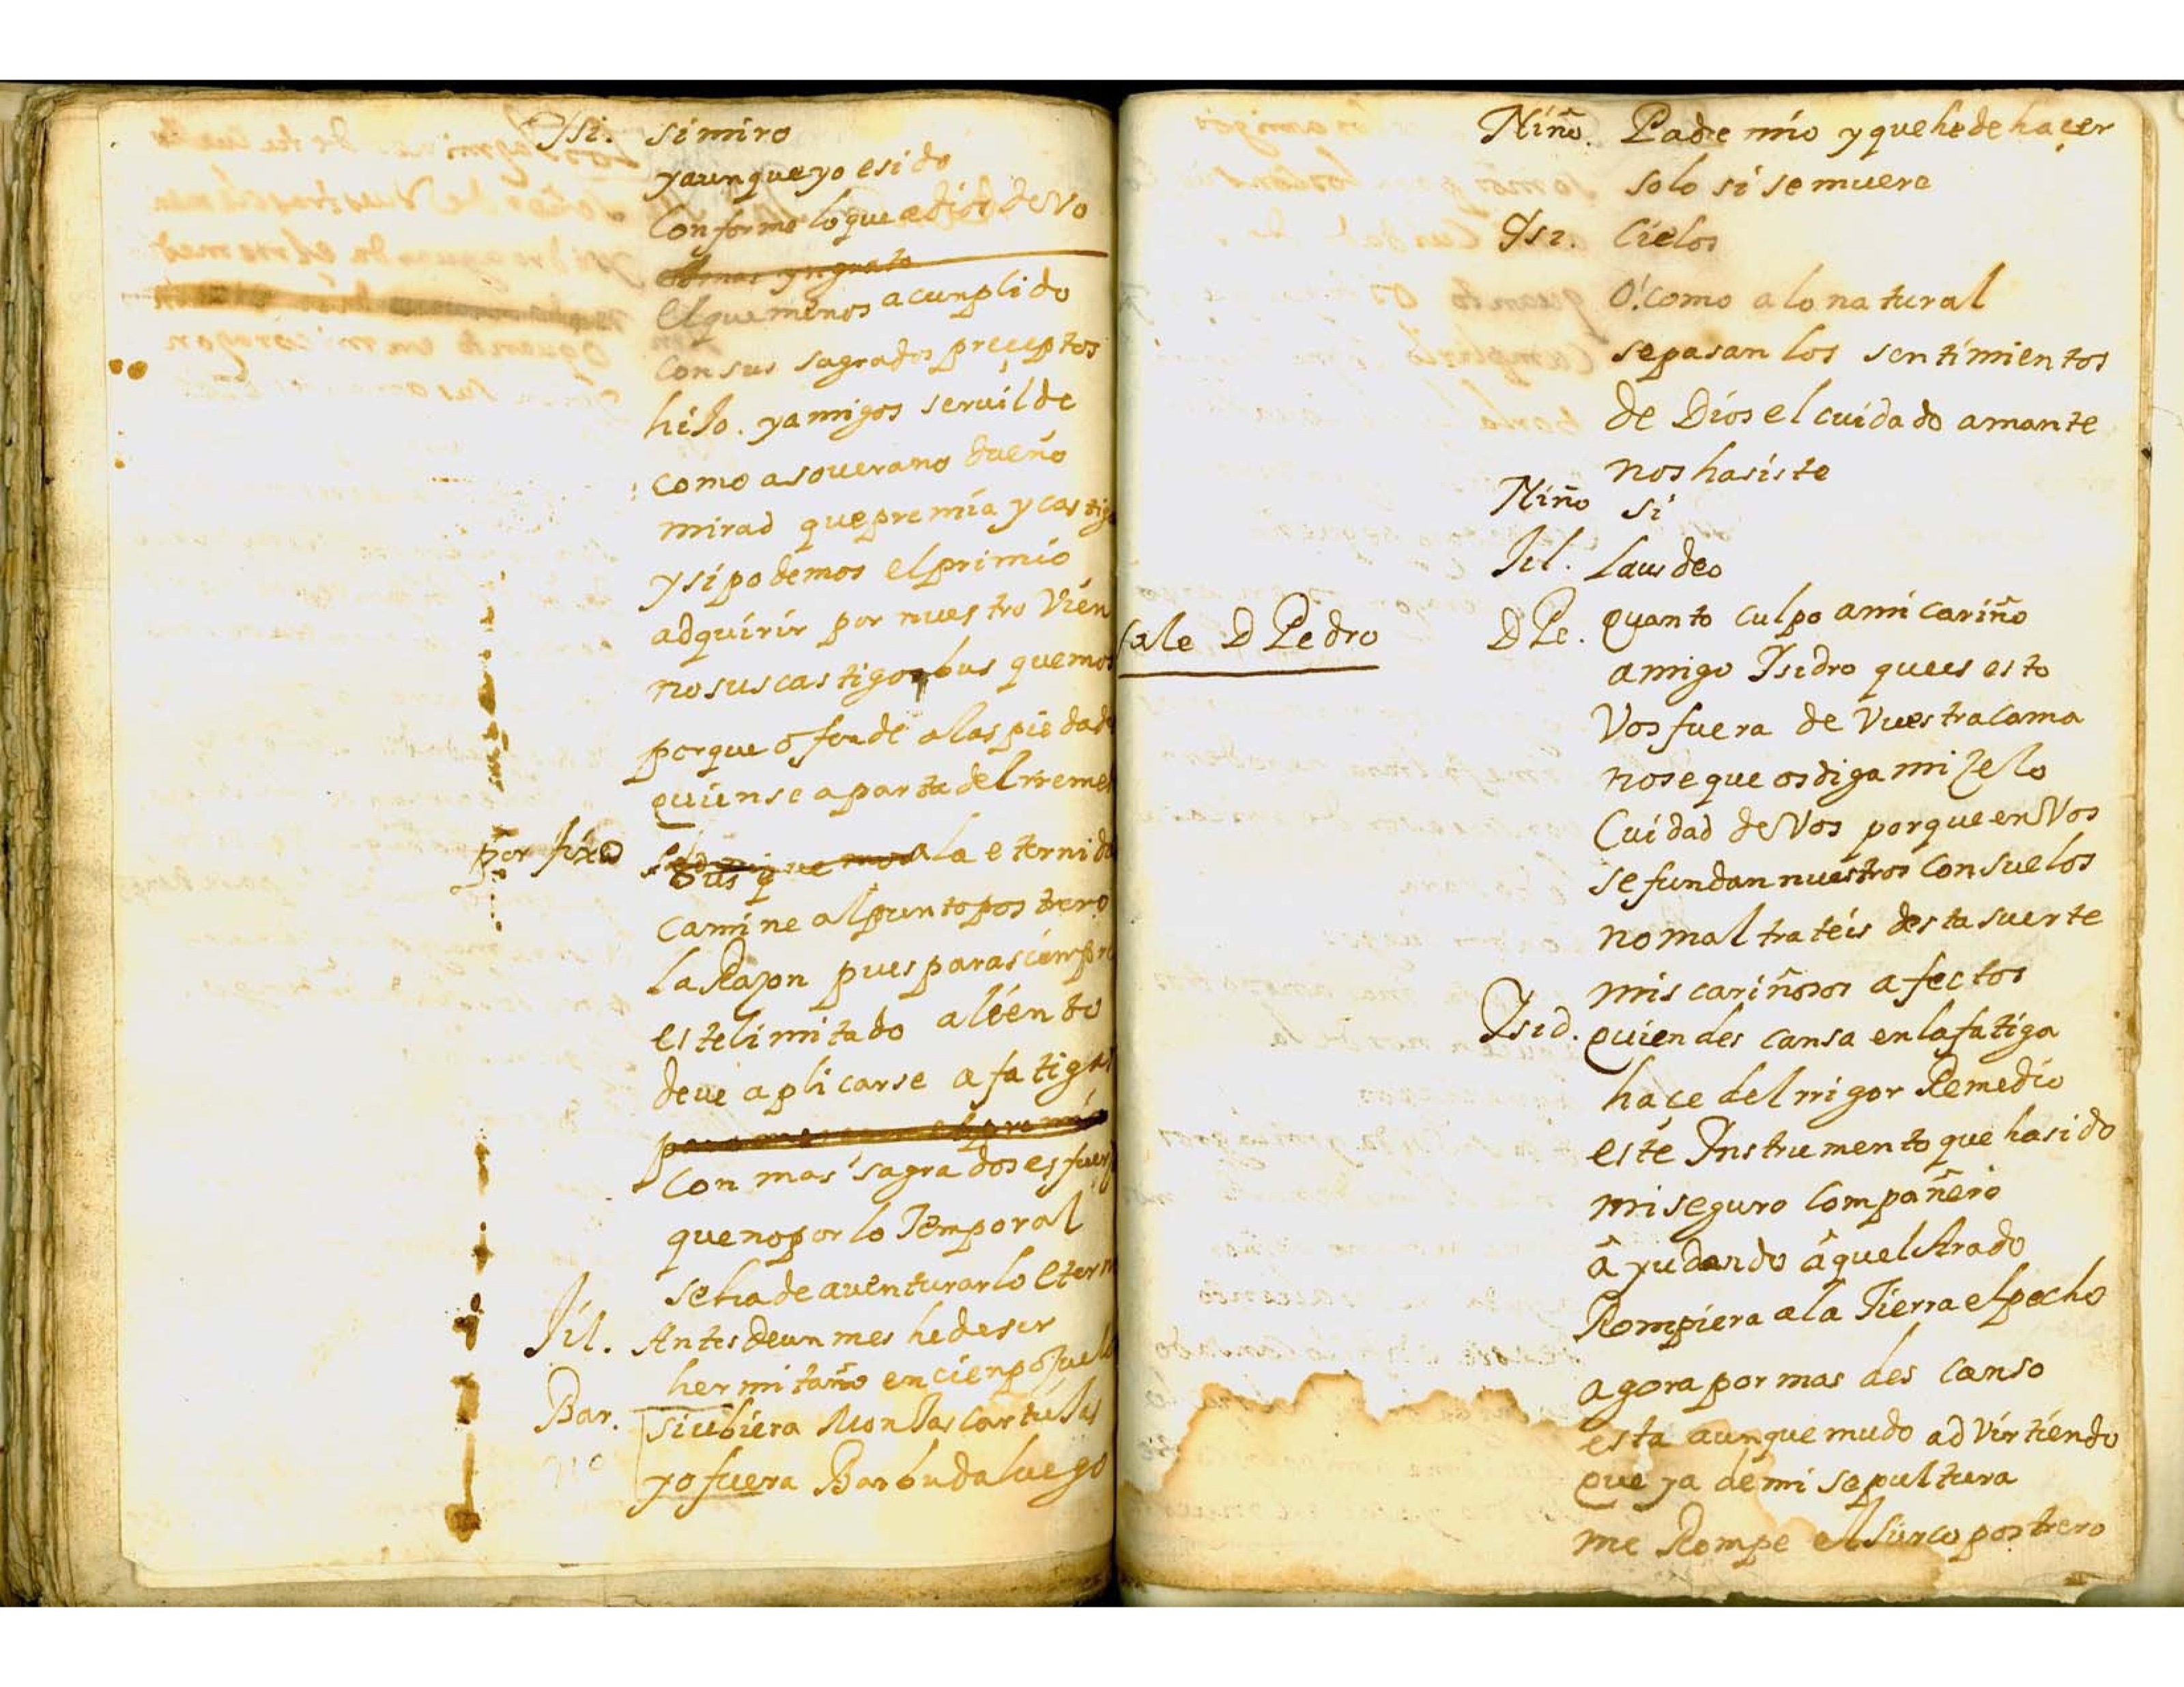 Ysi. si miro
y aunque yo e sido
Conforme lo que e dios devo
el que menos a cunplido
con sus sagrados preçeptos
hijo. y amigos servilde
como a soverano dueño
mirad que premia y castiga
y si podemos el primio
adquirir por nuestro Vien
no sus castigos bus quemos
porque ofende a las piedade
quien se aparta del rreme
por fixa
a la eternida
camine al punto postrero
la Razon pues para siempre
este limitado aliento
deve aplicarse a fatigas
Con mas sagrados esfuer
que no por lo Temporal
se ha de aventurar lo etern
Jil. Antes de un mes he de ser
hermitaño en cienpozuelo
Bar. si ubiera Monjas cartujas
yo fuera Barbuda luego
Niño. Padre mio y que he de haçer
solo si se muere
Ysi. Cielos
O! como a lo natural
se pasan los sentimientos
de Dios el cuidado amante
nos hasiste
Niño si
Jil. Laus deo
sale D Pedro
D Pe. quanto culpo a mi cariño
amigo Isidro que es esto
Vos fuera de Vuestra cama
no se que os diga mi zelo
Cuidad de Vos porque en Vos
se fundan nuestros Consuelos
no mal trateis desta suerte
mis cariñosos afectos
Isid. quien des cansa en la fatiga
haçe del rrigor Remedio
este Instrumento que ha sido
mi seguro Compañero
ayudando aquel Arado
Rompiera a la Tierra el pecho
agora por mas des canso
esta aunque mudo adVirtiendo
que ya de mi sepultura
me Rompe el surco postrero